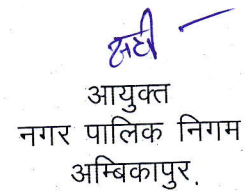 सही
आयुक्त
नगर पालिक निगम
अम्बिकापुर.